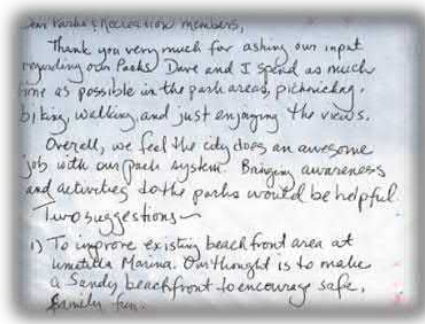 Dear Parks & Recreation members,
Thank you very much for asking our input
regarding our Parks. Dave and I spend as much
time as possible in the park areas, picnicking,
biking, walking, and just enjoying the views.
Overall, we feel the city does an awesome
job with our park system. Bringing awareness
and activities to the parks would be helpful.
Two suggestions~
1) To improve existing beachfront area at
Umatilla Marina. Our thought is to make
a Sandy beachfront to encourage safe,
family fun.